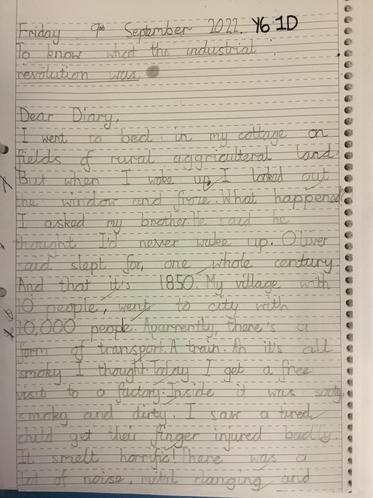 Friday 9th September 2022. Y6 1D
To know what the industrial
revolution was
Dear Diary,
I went to bed in my cottage on
fields of rural aggricultural land.
But when I woke up, I looked out
the window and froze. What happened
I asked my brother. He said he
thought I'd never wake up. Oliver
said slept for, one whole century.
And that it's 1850. My village with
10 people, went to city with
10,000 people. Aparrently, there's a
form of transport. A train. An it's all
smoky I thought. Today I get a free
visit to a factory. Inside it was sooty
smoky and dirty. I saw a tired
child get their finger injured badly.
It smelt horrible! There was a
lot of noise, metal clanging and